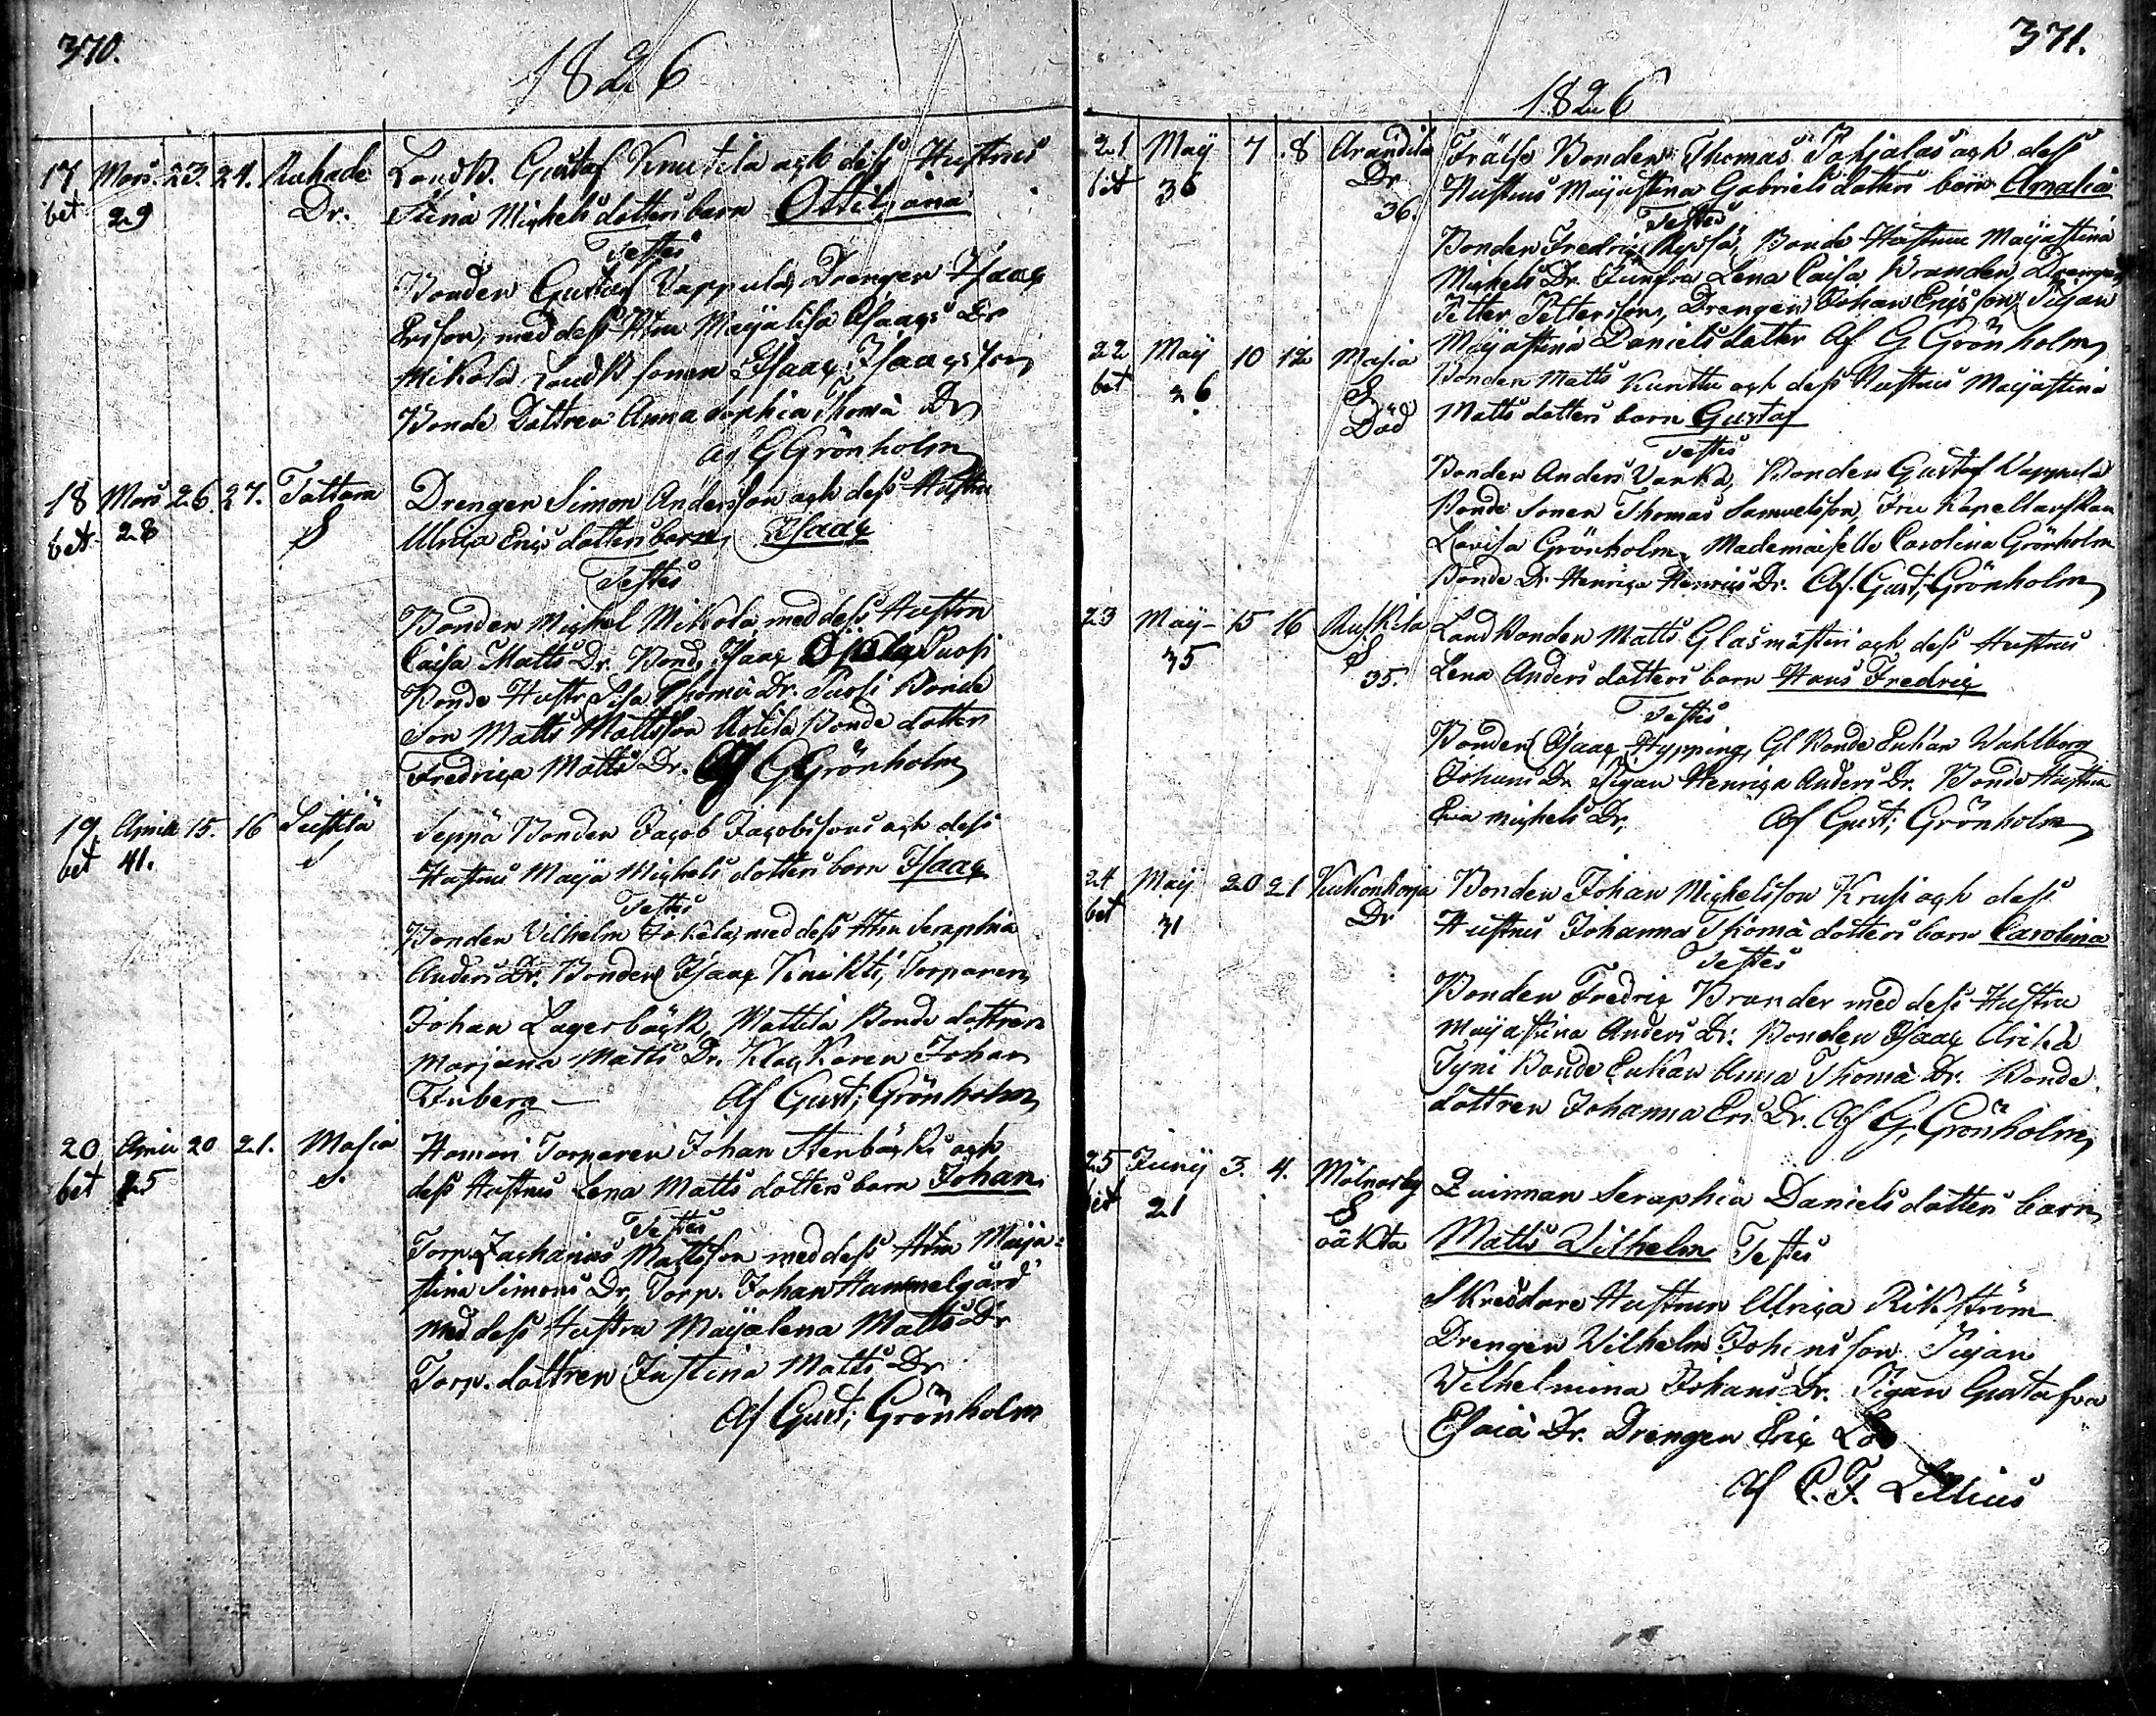 370.
1826
17 Mars 23. 24. Ruhade Landb. Gustaf Knutila och dess Hustrus
bet 29 Dr. Stina Michels dotters barn Ottiliana
Testes
Bonden Gustaf Kappula, Drengen Isaac
Ersson, med dess Htru Maijalisa Isaacs Dr
Mikola Landb sonen Isaac Isaacsson
Bonde Dottren Anna Sophia Thomæ Dr
af G Grönholm
18 Mars 26. 27. Tattara Drengen Simon Andersson och dess Hustru
bet 28 S Ulrica Erics dotters barn, Isaac
Testes
Bonden Michel Mikola med dess Hustru
Caisa Matts Dr. Bond. Isaac Suosi
Bonde Hustr. Lisa Thomæ Dr. Suosi Bonde
Son Matts Mattsson Uotila Bonde dotter
Fredrica Matts Dr. Af G Grönholm
19. April 15. 16 Leistilä Seppä Bonden Jacob Jacobssons och dess
bet 41. S Hustrus Maija Michels dotters barn Isaac
Testes
Bonden Vilhelm Jokela, med dess Htru Seraphia
Anders Dr. Bonden Isaac Knikti, Torparen
Johan Lagerbäck, Mattila Bonde dottren
Marjana Matts Dr. Klockaren Johan
Af Gust; Grönholm
20 April 20 21. Masia Hamari Torparen Johan Stenbäcks och
bet 25 S. dess Hustrus Lena Matts dotters barn Johan.
Testes
Torp. Zacharias Mattsson med dess Htru Maija-
stina Simons Dr, Torp. Johan Hammelgård
med dess Hustru Maijalena Matts Dr
Torp. dottren Justina Matts Dr
Af Gust; Grönholm
371.
1826
21 Maij 7 8 Arandila Frälse Bonden Thomas Pohjalas och dess
bet 36 Dr 36. Hustrus Maijastina Gabriels dotters barn Amalia
Testes
Bonden Fredric Bonde Hustrun Maijastina
Michels Dr. Jungfru Lena Caisa Brander, Drengen
Petter Pettersson, Drengen Johan Ericsson, Pigan
Maijastina Daniels dotter Af G Grönholm
22 Maij 10 12 Masia Bonden Matts Kunttu och dess Hustrus Maijastina
bet 26 S Död Matts dotters barn Gustaf
Testes
Bonden Anders Vanka, Bonden Gustaf Kappula
Bonde sonen Thomas Samuelsson, Fru Kapellanskan
Lovisa Grönholm, Mademoiselle Carolina Grönholm
Bonde Dr. Henrica Henrics Dr. Af. Gust; Grönholm
23 Maij 15 16 Ruskila Landbonden Matts Glasmästeri och dess Hustrus
35 S 35. Lena Anders dotters barn Hans Fredric
Testes
Bonden Isaac Hypping, Gl Bonde Enkan Wahlborg
Johans Dr. Pigan Henrica Anders Dr. Bonde Hustru
Eva Michels Dr, Af Gust; Grönholm
24 Maij 20 21 Kuckonhoja Bonden Johan Michelsson Krusi och dess
bet 31 Dr Hustrus Johanna Thomæ dotters barn Carolina
Testes
Bonden Fredric Brander med dess Hustru
Maijastina Anders Dr. Bonden Isaac Arikä
Tyni Bonde Enkan Anna Thomæ Dr. Bonde
dottren Johanna Ers Dr. Af G, Grönholm
25 Junij 3. 4. Mölnarby Quinnan Seraphia Daniels dotters barn
bet 21 S oäkta Matts Vilhelm Testes
Skreddare Hustrun Ulrica Rikström
Drengen Vilhelm Johansson Pigan
Vilhelmina Johans Dr. Pigan Gustafva
Esaiæ Dr. Drengen Eric
Af C. F. Lillius